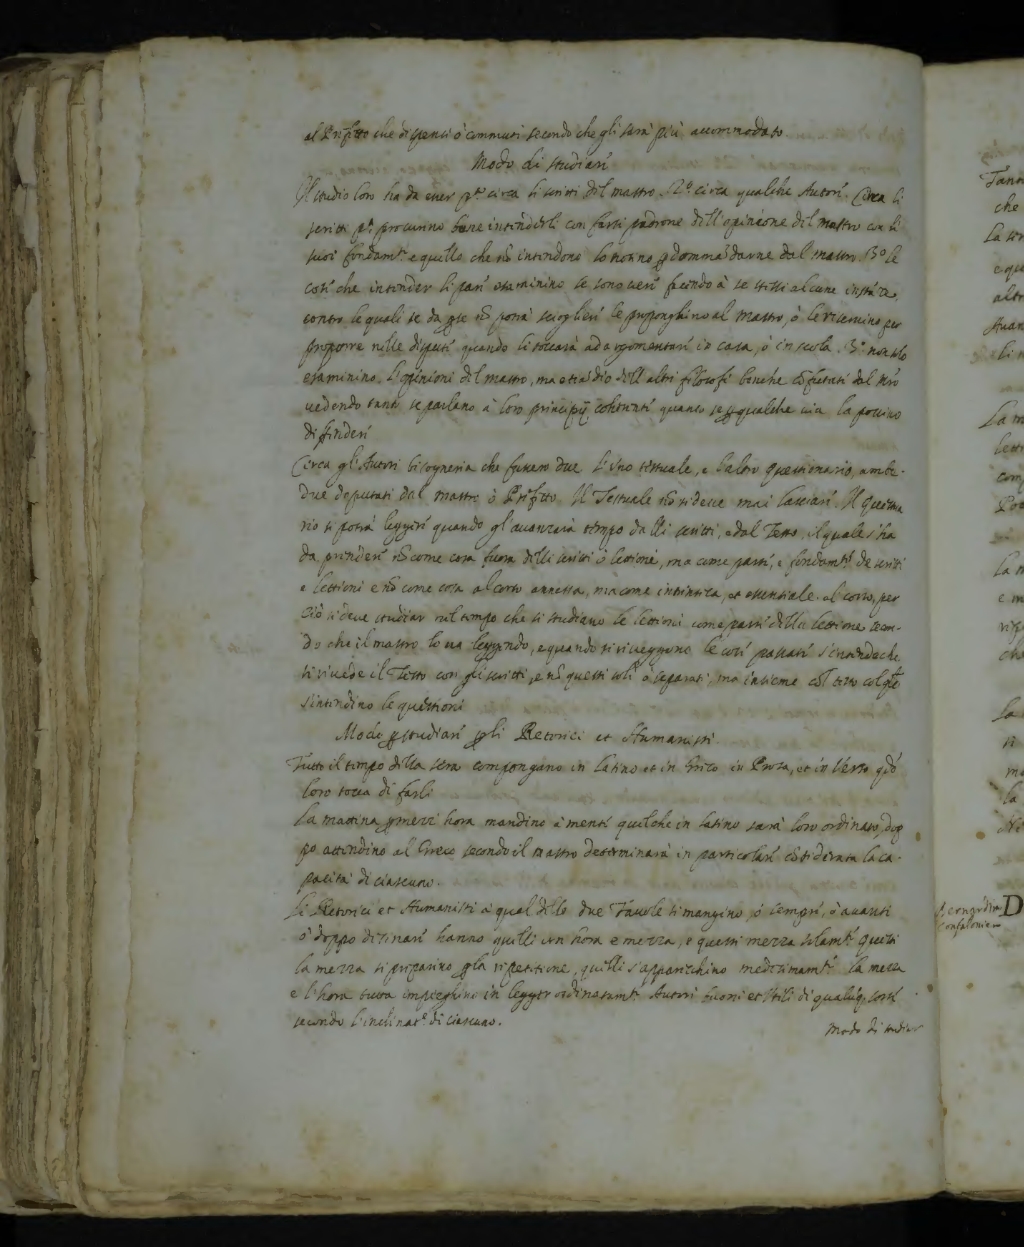 al Prefetto che dispensi ò commuti secondo che gli sarà più accommodato
Modo di studiare
Il studio loro ha da esser p.º circa li scritti del mastro. 2.º circa qualche Autori. Circa li
scritti p.º procurino bene intenderli con farsi padrone dell'opinione del mastro con li
suoi fondam.ti e quello che nõ intendono lo notino p domandarne dal mastro. 2.º le
cose che intender li pare esaminino se sono vere facendo à se stessi alcune instãze
contro le quali se da p se nõ potrà sciogliere le proponghino al mastro, ò le riservino per
proporre nelle dispute quando li toccarà ad argomentare in casa, ò in scola. 3.º non solo
esaminino l'opinioni del mastro, ma etiãdio dell'altri filosofi benche cõfutati dal
vedendo tanto se parlano à loro principij cohrenti quanto se p qualche via la possino
diffendere
Circa gl'Autori bisogneria che fussero due l'uno testuale, e l'altro questionario, ambe-
due deputati dal mastro ò Prefetto. Il Testuale nõ si deve mai lasciare. Il questiona
rio si potrà leggere quando gl'avanzarà tempo dalli scritti, e dal Testo, il quale s'ha
da prendere nõ come cosa fuora delli scritti ò lettione, ma come parte, e fondam.to de scritti
e lettioni e nõ come cosa al corso annessa, ma come intrinseca, et essentiale al corso, per
ciò si deve studiar nel tempo che si studiano le lettioni come parte della lettione secon-
do che il mastro lo va leggendo, e quando si riveggono le cose passate s'intende che
si rivede il Testo con gli scritti, e nõ questi soli ò separati, ma insieme col testo col qle
s'intendino le questioni
Modo p studiare p gli Retorici et Humanisti.
Tutto il tempo della sera compongano in latino et in Greco in Prosa, et in Verso qdo
loro tocca di farlo
La mattina p mezz'hora mandino à mente quelche in latino sarà loro ordinato, dop
po attendino al Greco secondo il mastro determinarà in particolare cõsiderata la ca-
pacità di ciascuno.
Li Retorici et Humanisti à qual delle due Tavole si mangino, ò sempre, ò avanti
ò doppo desinare hanno quelli un hora e mezza, e questi mezza solam.te questi
la mezza si preparino p la ripetitione, quelli s'apparecchino medesimam.te la mezza
e l'hora tutta impieghino in leggere ordinatam.te Autori buoni et utili di qualũq sorte
secondo l'inclinat.e di ciascuno.
Modo di studiar